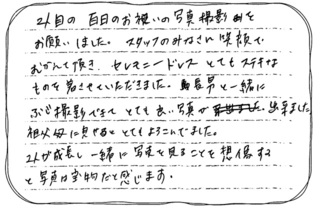 2人目の百日のお祝いの写真撮影を
お願いしました。スタッフのみなさん笑顔で
むかえて頂き、セレモニードレスとてもステキな
ものを着させていただきました。長男と一緒に
ぶじ撮影できてとても良い写真が出来ました。
祖父母に見せるととてもよろこんでました。
2人が成長し一緒に写真を見ることを想像する
と写真は宝物だと感じます。